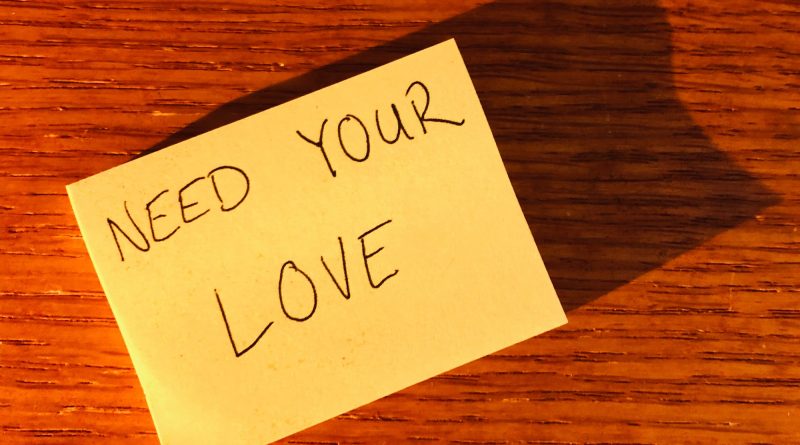 NEED YOUR
LOVE